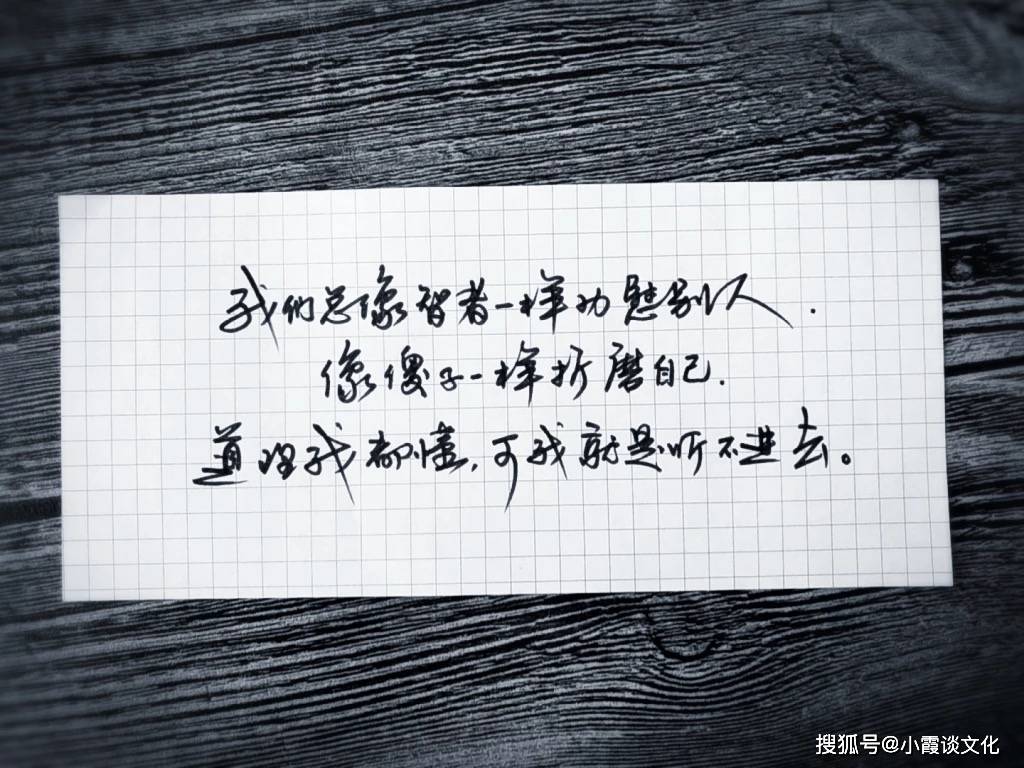 我们总像智者一样劝慰别人.
像傻子一样折磨自己.
道理我都懂,可我就是听不进去。
搜狐号@小霞谈文化